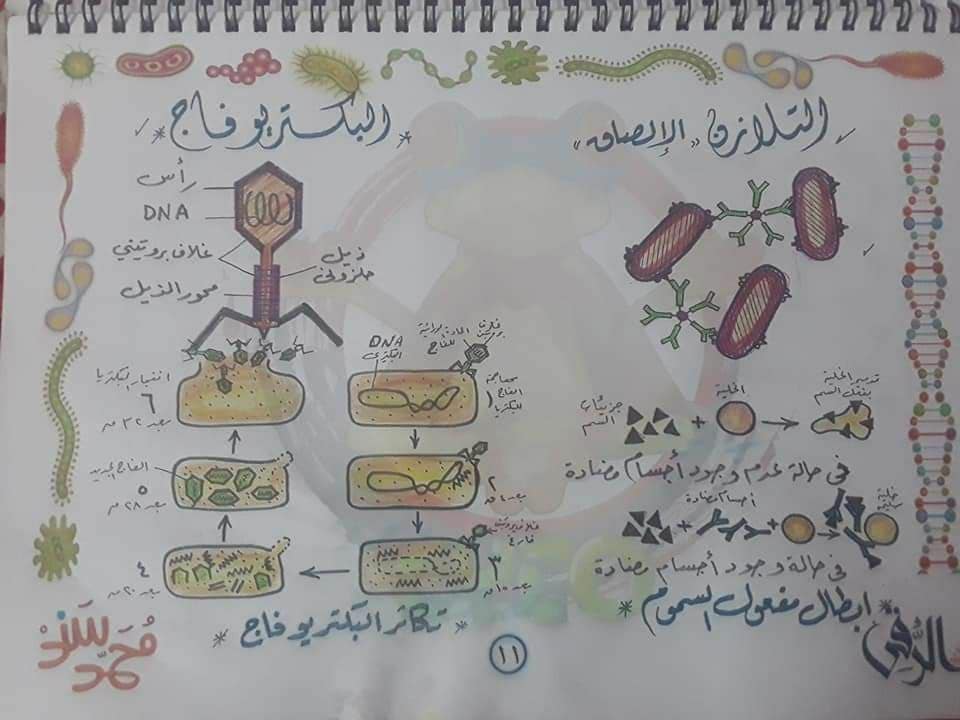 التلازن "الإلصاق"
في حالة عدم وجود أجسام مضادة
جزيئات السم
+
الخلية
تدمير الخلية بفعل السم
+
أجسام مضادة
+
خلية سليمة
في حالة وجود أجسام مضادة
* ابطال مفعول السموم *
* البكتريوفاج *
رأس
DNA
غلاف بروتيني
ذيل حلزونى
محور الذيل
DNA البكتيرى
مهاجمة الفاج للبكتريا
١
٢
٣
غلاف بروتينى فارغ
٤
بعد ٢٠ ق
٥
الفاج الجديد
بعد ٢٨ ق
٦
انفجار البكتريا
بعد ٣٢ ق
* تكاثر البكتريوفاج *
١١
محمد سند